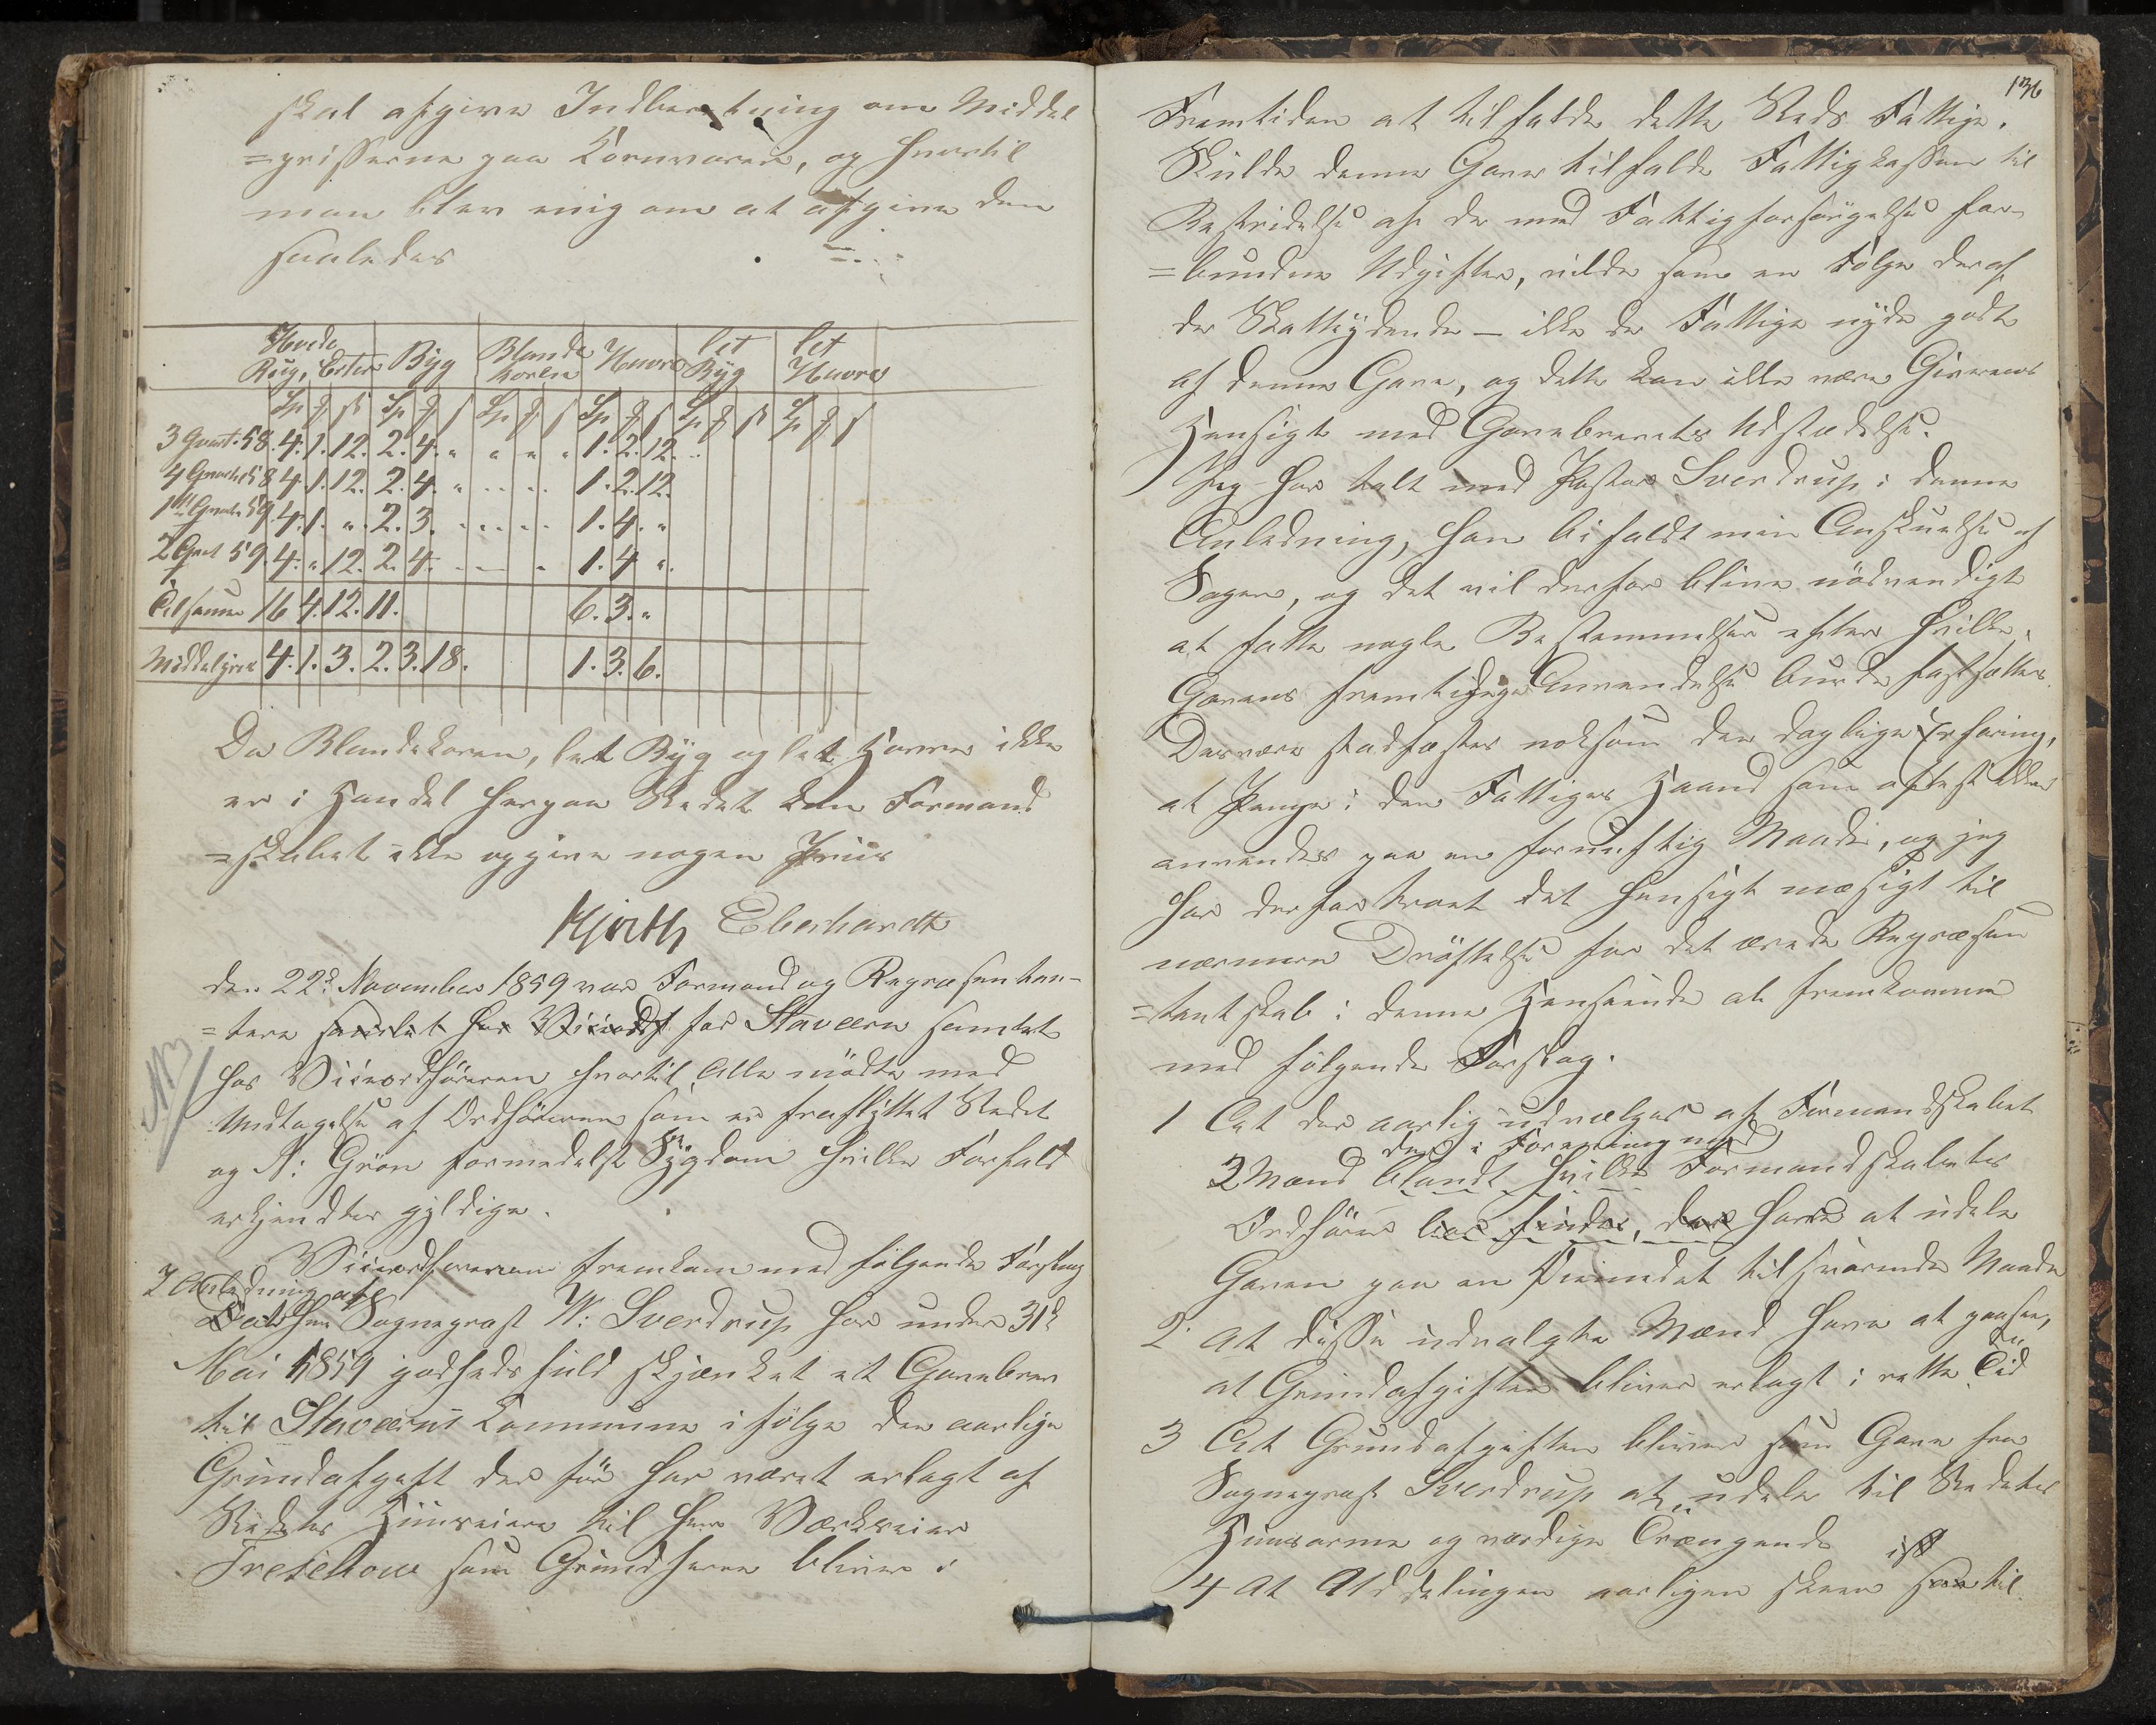 skal afgive Indberetning om Middel
=priserne paa Kornvarer, og hvortil
man blev enig om at afgive den
saaledes
Hvede Rug, Erter Byg Blande korn Havre let Byg let Havre
Sp ß Sp ß Sp ß Sp ß Sp ß Sp ß
3 Qvart. 58. 4. 1. 12. 2. 4. " " " " 1. 2. 12.
4 Qvart 58 4. 1. 12. 2. 4. " 1. 2. 12.
1ste Qvart 59. 4. 1. " 2. 3. 1. 4. "
2 Qvart 59. 4. " 12. 2. 4. 1. 4 "
Tilsamen 16 4. 12. 11. 6. 3. "
Middelpris 4. 1. 3. 2. 3. 18. 1. 3. 6.
Da Blandekorn, let Byg og let Havre ikke
er i Handel her paa Stedet kan Formand
=skabet ikke opgive nogen Priis
Hjorth Eberhardt
Den 22de November 1859 var Formænd og Repræsentan-
=tere samlet hos Viceordf for Stavern samlet
hos Viceordføreren hvortil Alle mødte med
Undtagelse af Ordføreren som er fraflyttet Stedet
og N: Grøn formedelst Sygdom hvilke Forfald
erkjendtes gyldige.
NB
Viceordføreren fremkom med følgende Forslag
I Anledning at
Da Hr Sogneprest W: Sverdrup har under 31te
Mai 1859 godhedsfuld skjænket et Gavebrev
til Staværns Commune ifølge den aarlige
Grundafgift der før har været erlagt af
Stedets Huuseiere til Herr Værkseier
Treschow som Grundherre bliver i
136
Fremtiden at tilfalde dette Steds Fattige.
Skulde denne Gave tilfalde Fattigkassen til
Bestridelse af de med Fattigforsørgelse for-
=bundne Udgifter, vilde som en Følge deraf
de Skatteydende – ikke de Fattige nyde godt
af denne Gave, og dette kan ikke være Giverens
Hensigt med Gavebrevets Udstædelse.
Jeg har talt med Pastor Sverdrup i denne
Anledning, han bifaldt min Anskuelse af
Sagen, og det vil derfor blive nødvendigt
at fatte nogle Bestemmelser efter hvilke
Gavens fremtidige Anvendelse burde fastsættes.
Desværre stadfæstes noksom den daglige Erfaring,
at Penge i den Fattiges Haand som oftest ikke
anvendes paa en fornuftig Maade, og jeg
har derfor troet det hensigtmæsigt til
nærmere Drøftelse for det ærede Repræsen
=tantskab i denne Henseende at fremkomme
med følgende Forslag.
1 At der aarlig udvælges af Formandskabet
der i Forening med
2 Mænd blandt hvilke Formandskabets
Ordfører bør findes, der have at udele
Gaven paa en Øiemedet tilsvarende Maade
2. at disse udvalgte Mænd have at paasee,
at Grundafgiften bliver erlagt i rette Tid
3 At Grundafgiften bliver som Gave fra
Sogneprest Sverdrup at udele til Stedets
Huusarme og værdige Trængende
4 At Uddelingen aarligen skeer her til